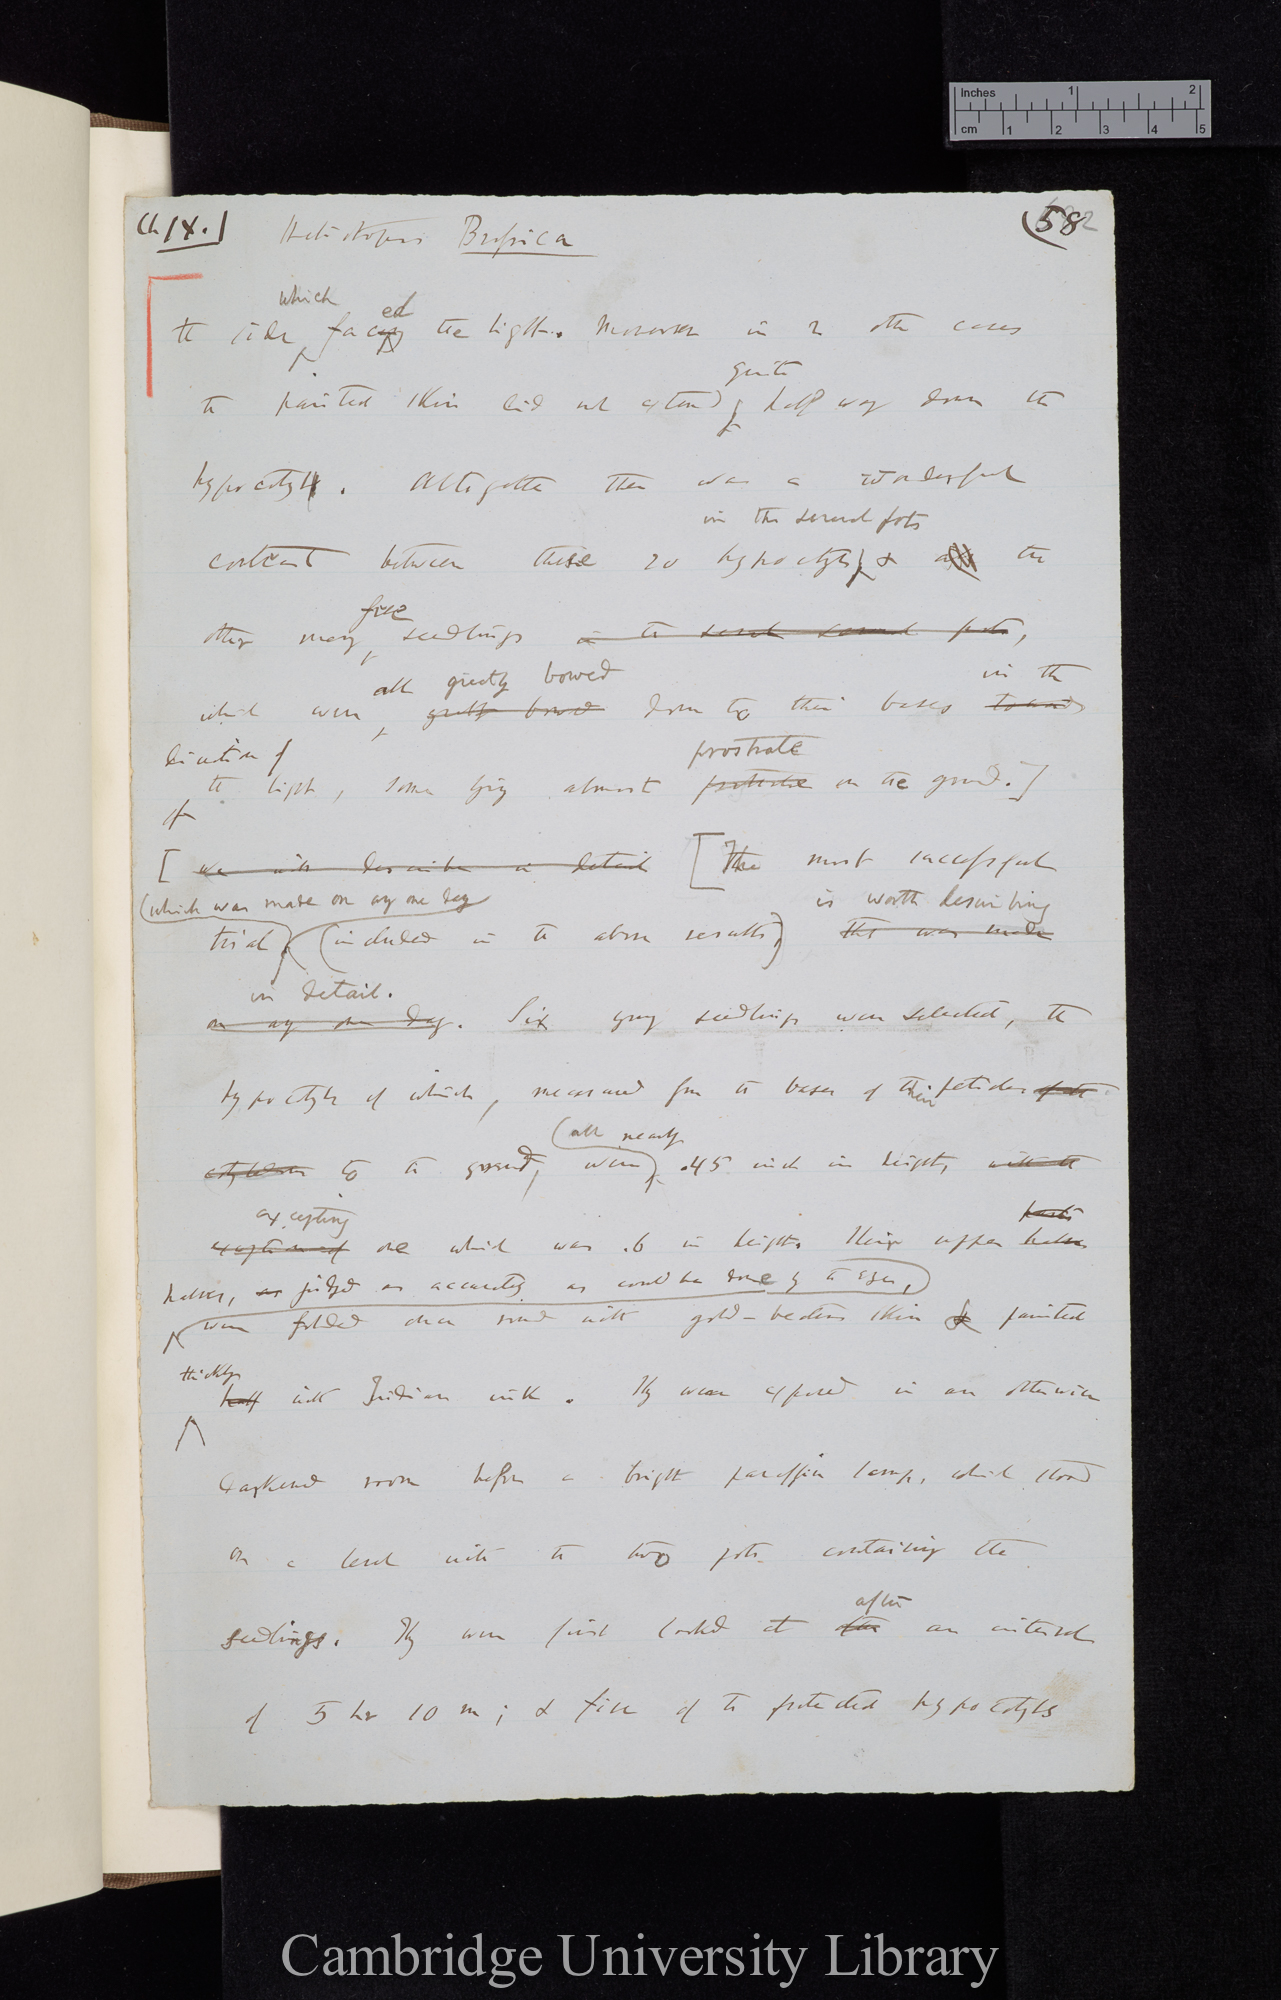 Inches 1 2
cm 1 2 3 4 5
Ch IX.
Heliotropism Brassica
(58
which ed
the side facing the light. Moreover in 2 other cases
quite
the painted skin did not extend half way down the
hypocotyl. Altogether there was a wonderful
in the several pots
contrast between these 20 hypocotyls & all the
free
other many seedlings in the several pots,
all greatly bowed in the
which were greatly bowed down to their bases towards
direction of prostrate
the light, some lying almost prostrate on the ground.]
[we will describe in detail [The most successful
(which was made on any one day is worth describing
trial, (included in the above results,) this was made
in detail.
on any one day. Six young seedlings were selected, the
hypocotyls of which, measured from the bases of their petioles of the
(all nearly
cotyledons to the ground, were .45 inch in height, with the
excepting parts
exception of one which was .6 in height. Their upper halves
halves, as judged as accurately as could be done by the eye,
were folded once round with gold-beaters skin & painted
thickly
half with Indian ink. They were exposed in an otherwise
darkened room before a bright paraffin lamp, which stood
on a level with the two pots containing the
after
seedlings. They were first looked at after an interval
of 5 hr 10 m; & five of the protected hypocotyls
Cambridge University Library